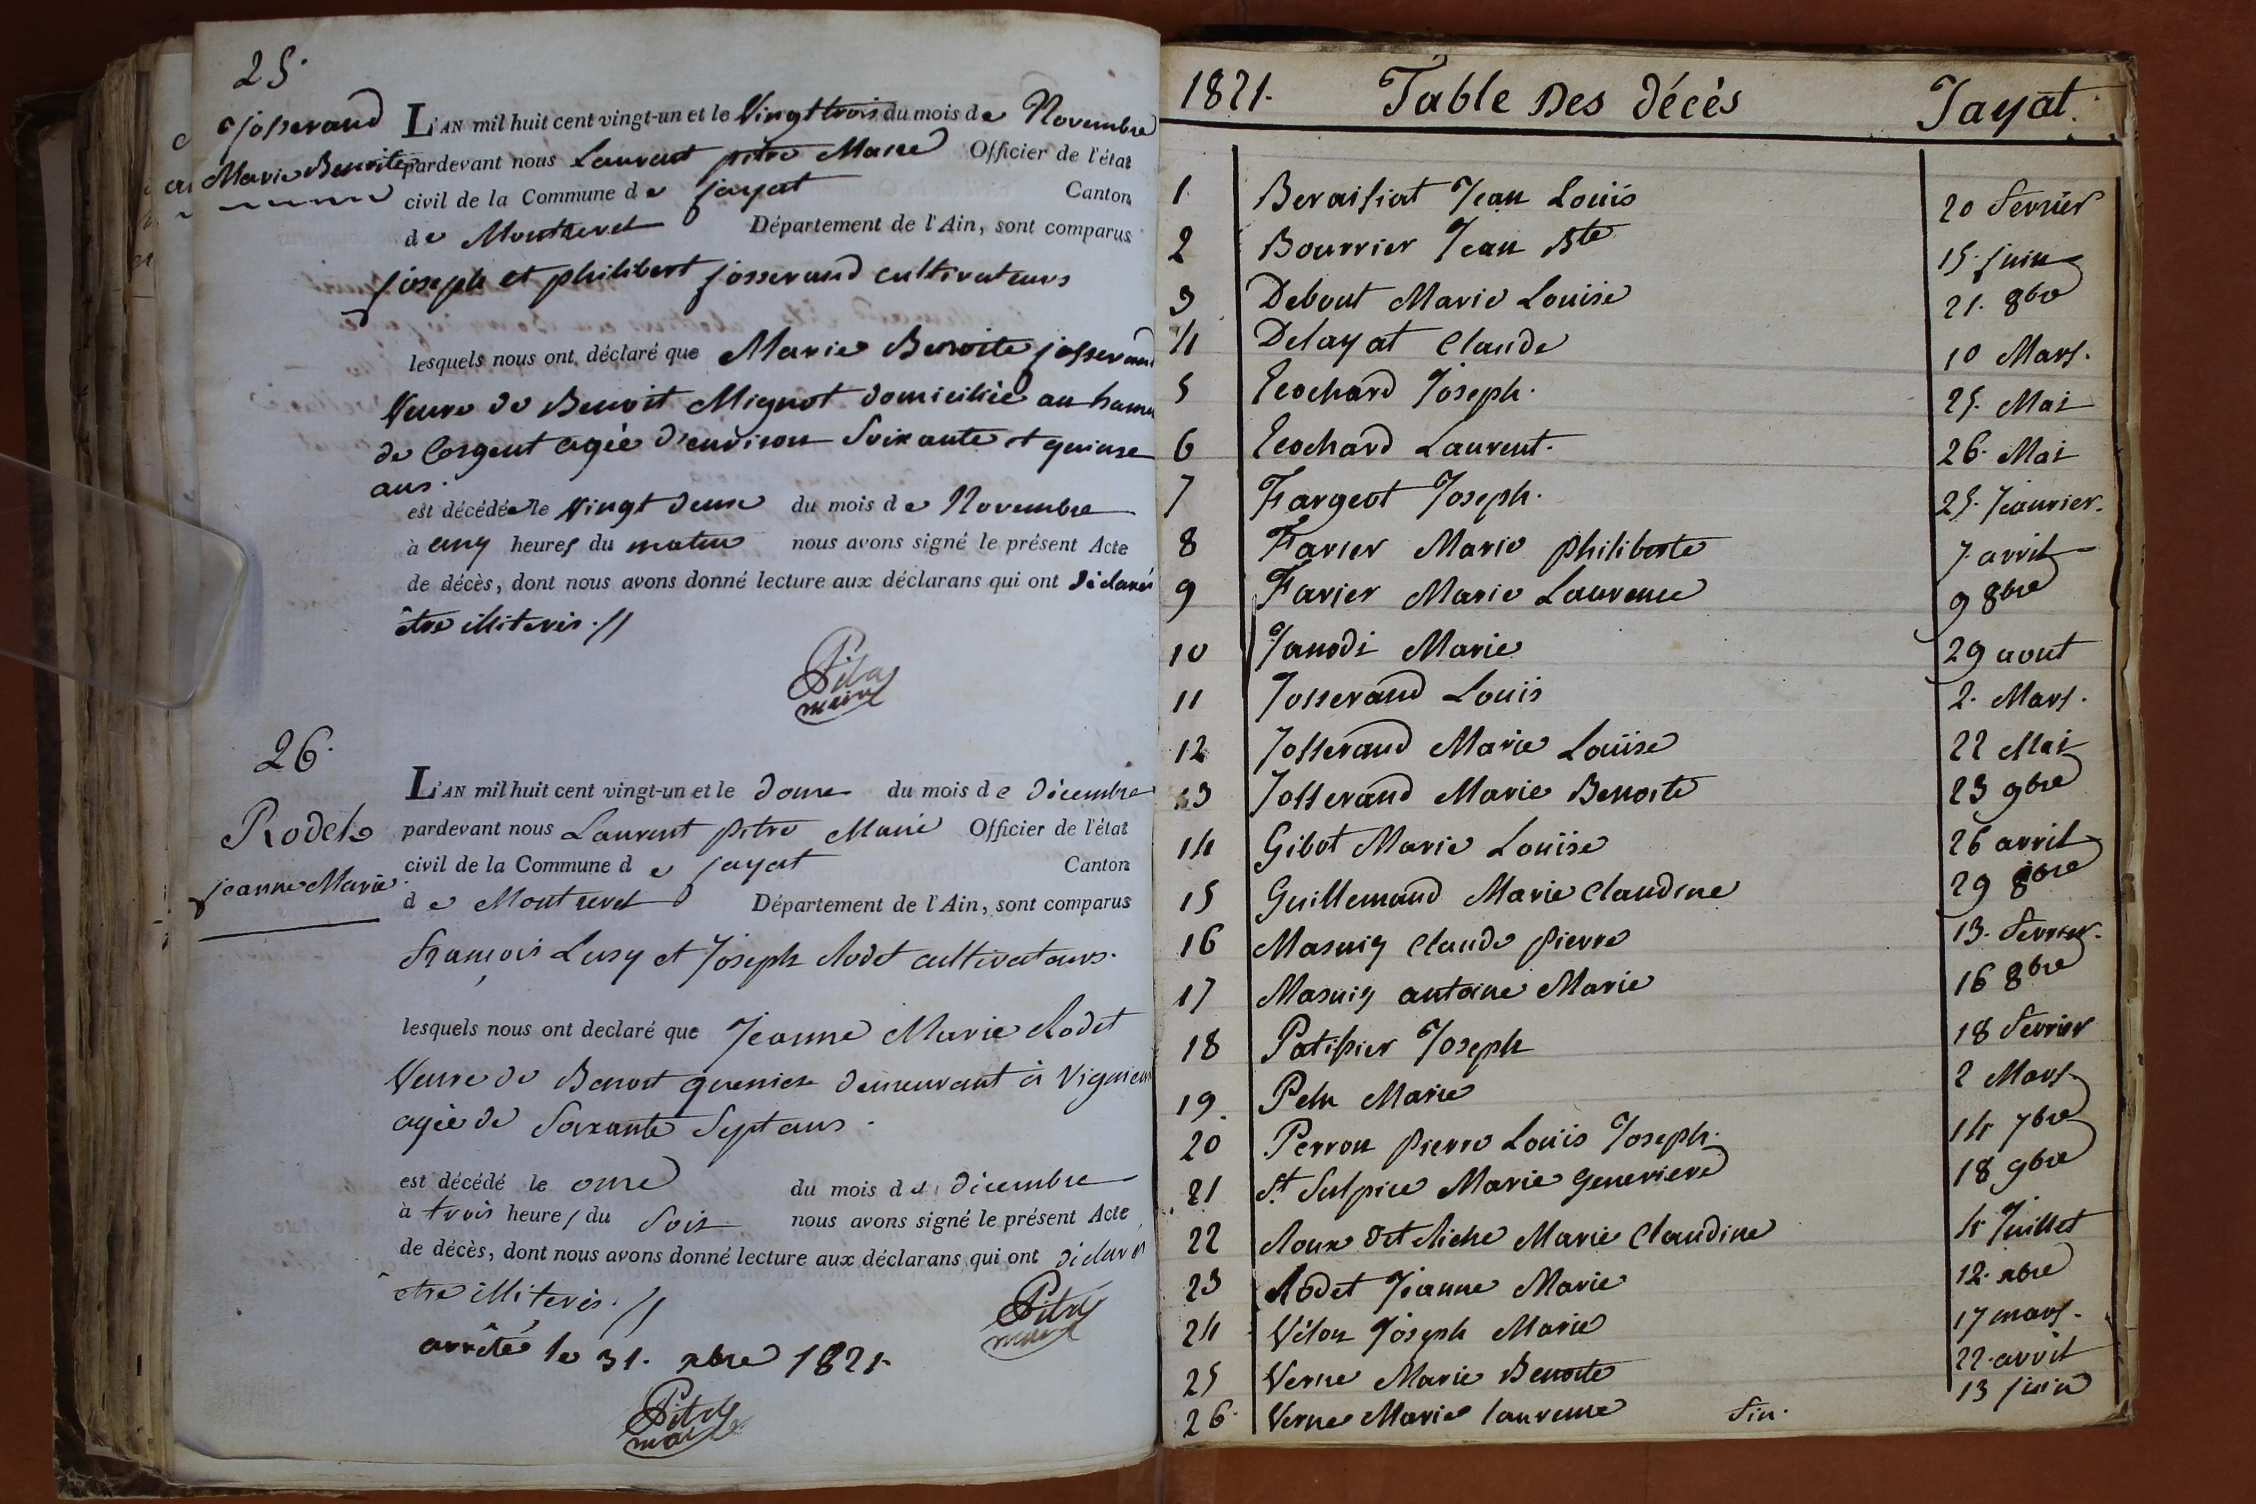 25.
josserand
Marie Benoite
L'AN mil huit cent vingt-un et le Vingt trois du mois de Novembre
pardevant nous Laurent pitre Maire Officier de l'état
civil de la Commune de jayat Canton
de Montrevel Département de l'Ain, sont comparus
joseph et philibert josserand cultivateurs
lesquels nous ont déclaré que Marie Benoite josserand
Veuve de Benoit Mignot domiciliée au hameau
de Corgent agée d'environ Soixante et quinze
ans.
est décédée le Vingt deux du mois de Novembre
à cinq heures du matin nous avons signé le présent Acte
de décès, dont nous avons donné lecture aux déclarans qui ont déclarés
être illiterés.//
Pitre
maire
26.
Rodet
jeanne Marie
L'AN mil huit cent vingt-un et le douze du mois de décembre
pardevant nous Laurent pitre Maire Officier de l'état
civil de la Commune de jayat Canton
de Montrevel Département de l'Ain, sont comparus
françois Lusy et Joseph Rodet cultivateurs.
lesquels nous ont declaré que Jeanne Marie Rodet
Veuve de Benoit demeurant à
agée de Soixante Sept ans.
est décédé le onze du mois de décembre
à trois heures du Soir nous avons signé le présent Acte
de décès, dont nous avons donné lecture aux déclarans qui ont déclarés
être illiterés.//
Pitre
maire
arrêté le 31. xbre 1821.
Pitre
maire
1821. Table Des décès Jayat.
1 Beraisiat Jean Louis 20 fevrier
2 Bourrier Jean Bte 15. juin
3 Debout Marie Louise 21. 8bre
4 Delayat Claude 10 Mars.
5 Ecochard Joseph. 25. Mai
6 Ecochard Laurent. 26. Mai
7 Fargeot Joseph. 25. Janvier.
8 Favier Marie philiberte 7 avril
9 Favier Marie Laurence 9 8bre
10 Janodi Marie 29 aout
11 Josserand Louis 2. Mars.
12 Josserand Marie Louise 22 Mai
13 Josserand Marie Benoite 23 9bre
14 Gibot Marie Louise 26 avril
15 Guillemaud Marie Claudine 29 8bre
16 Masuiy Claude pierre 13. fevrier.
17 Masuiy antoine Marie 16 8bre
18 Patissier Joseph 18 fevrier
19. Marie 2 Mars
20 Perron pierre Louis Joseph. 14 7bre
21 St Sulpice Marie Genevieve 18 9bre
22 Roux dit Riche Marie Claudine 4 Juillet
23 Rodet Jeanne Marie 12. xbre
24 Joseph Marie 17 mars.
25 Verne Marie Benoite 22. avril
26. Verne Marie laurence fin. 13 juin